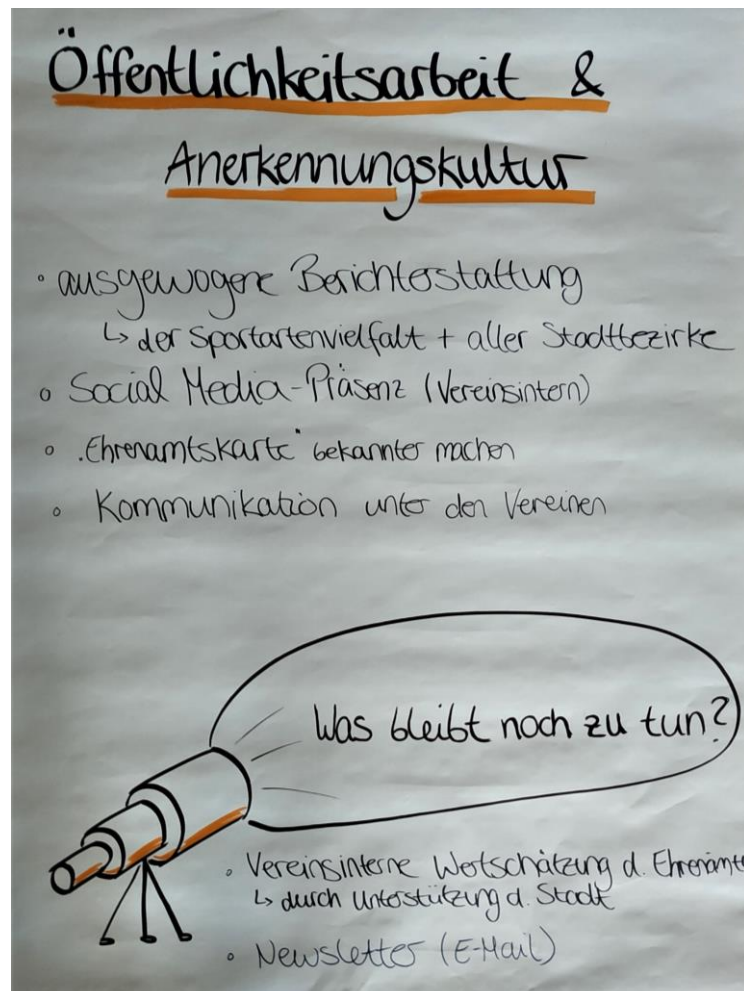 Öffentlichkeitsarbeit &
Anerkennungskultur
◦ ausgewogene Berichterstattung
↳ der Sportartenvielfalt + aller Stadtbezirke
◦ Social Media-Präsenz (Vereinsintern)
◦ "Ehrenamtskarte" bekannter machen
◦ Kommunikation unter den Vereinen
Was bleibt noch zu tun?
◦ Vereinsinterne Wertschätzung d. Ehrenamte
↳ durch Unterstützung d. Stadt
◦ Newsletter (E-Mail)